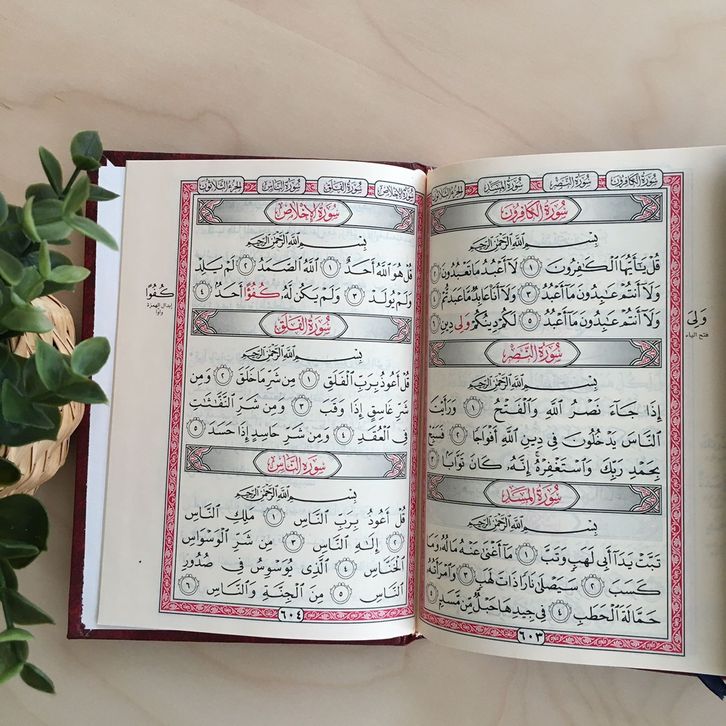 سُورَةُ الكَافِرُون سُورَةُ النَّصْر سُورَةُ المَسَد الجُزْءُ الثَّلَاثُون
سُورَةُ الكَافِرُون
بِسْمِ اللَّهِ الرَّحْمَٰنِ الرَّحِيمِ
قُلْ يَٰٓأَيُّهَا ٱلْكَٰفِرُونَ ١ لَآ أَعْبُدُ مَا تَعْبُدُونَ ٢
وَلَآ أَنتُمْ عَٰبِدُونَ مَآ أَعْبُدُ ٣ وَلَآ أَنَا۠ عَابِدٌ مَّا عَبَدتُّمْ ٤
وَلَآ أَنتُمْ عَٰبِدُونَ مَآ أَعْبُدُ ٥ لَكُمْ دِينُكُمْ وَلِيَ دِينِ ٦
وَلِيَ
فتح الياء
سُورَةُ النَّصْر
بِسْمِ اللَّهِ الرَّحْمَٰنِ الرَّحِيمِ
إِذَا جَآءَ نَصْرُ ٱللَّهِ وَٱلْفَتْحُ ١ وَرَأَيْتَ
ٱلنَّاسَ يَدْخُلُونَ فِي دِينِ ٱللَّهِ أَفْوَاجًا ٢ فَسَبِّحْ
بِحَمْدِ رَبِّكَ وَٱسْتَغْفِرْهُ إِنَّهُۥ كَانَ تَوَّابًا ٣
سُورَةُ المَسَد
بِسْمِ اللَّهِ الرَّحْمَٰنِ الرَّحِيمِ
تَبَّتْ يَدَآ أَبِي لَهَبٍ وَتَبَّ ١ مَآ أَغْنَىٰ عَنْهُ مَالُهُۥ وَمَا
كَسَبَ ٢ سَيَصْلَىٰ نَارًا ذَاتَ لَهَبٍ ٣ وَٱمْرَأَتُهُۥ
حَمَّالَةَ ٱلْحَطَبِ ٤ فِي جِيدِهَا حَبْلٌ مِّن مَّسَدٍۭ ٥
٦٠٣
سُورَةُ الإِخْلَاص سُورَةُ الفَلَق سُورَةُ النَّاس الجُزْءُ الثَّلَاثُون
سُورَةُ الإِخْلَاص
بِسْمِ اللَّهِ الرَّحْمَٰنِ الرَّحِيمِ
قُلْ هُوَ ٱللَّهُ أَحَدٌ ١ ٱللَّهُ ٱلصَّمَدُ ٢ لَمْ يَلِدْ
وَلَمْ يُولَدْ ٣ وَلَمْ يَكُن لَّهُۥ كُفُوًا أَحَدٌۢ ٤
كُفُوًا
إبدال الهمزة
واوًا
سُورَةُ الفَلَق
بِسْمِ اللَّهِ الرَّحْمَٰنِ الرَّحِيمِ
قُلْ أَعُوذُ بِرَبِّ ٱلْفَلَقِ ١ مِن شَرِّ مَا خَلَقَ ٢ وَمِن
شَرِّ غَاسِقٍ إِذَا وَقَبَ ٣ وَمِن شَرِّ ٱلنَّفَّٰثَٰتِ
فِي ٱلْعُقَدِ ٤ وَمِن شَرِّ حَاسِدٍ إِذَا حَسَدَ ٥
سُورَةُ النَّاس
بِسْمِ اللَّهِ الرَّحْمَٰنِ الرَّحِيمِ
قُلْ أَعُوذُ بِرَبِّ ٱلنَّاسِ ١ مَلِكِ ٱلنَّاسِ
٢ إِلَٰهِ ٱلنَّاسِ ٣ مِن شَرِّ ٱلْوَسْوَاسِ
ٱلْخَنَّاسِ ٤ ٱلَّذِي يُوَسْوِسُ فِي صُدُورِ
ٱلنَّاسِ ٥ مِنَ ٱلْجِنَّةِ وَٱلنَّاسِ ٦
٦٠٤